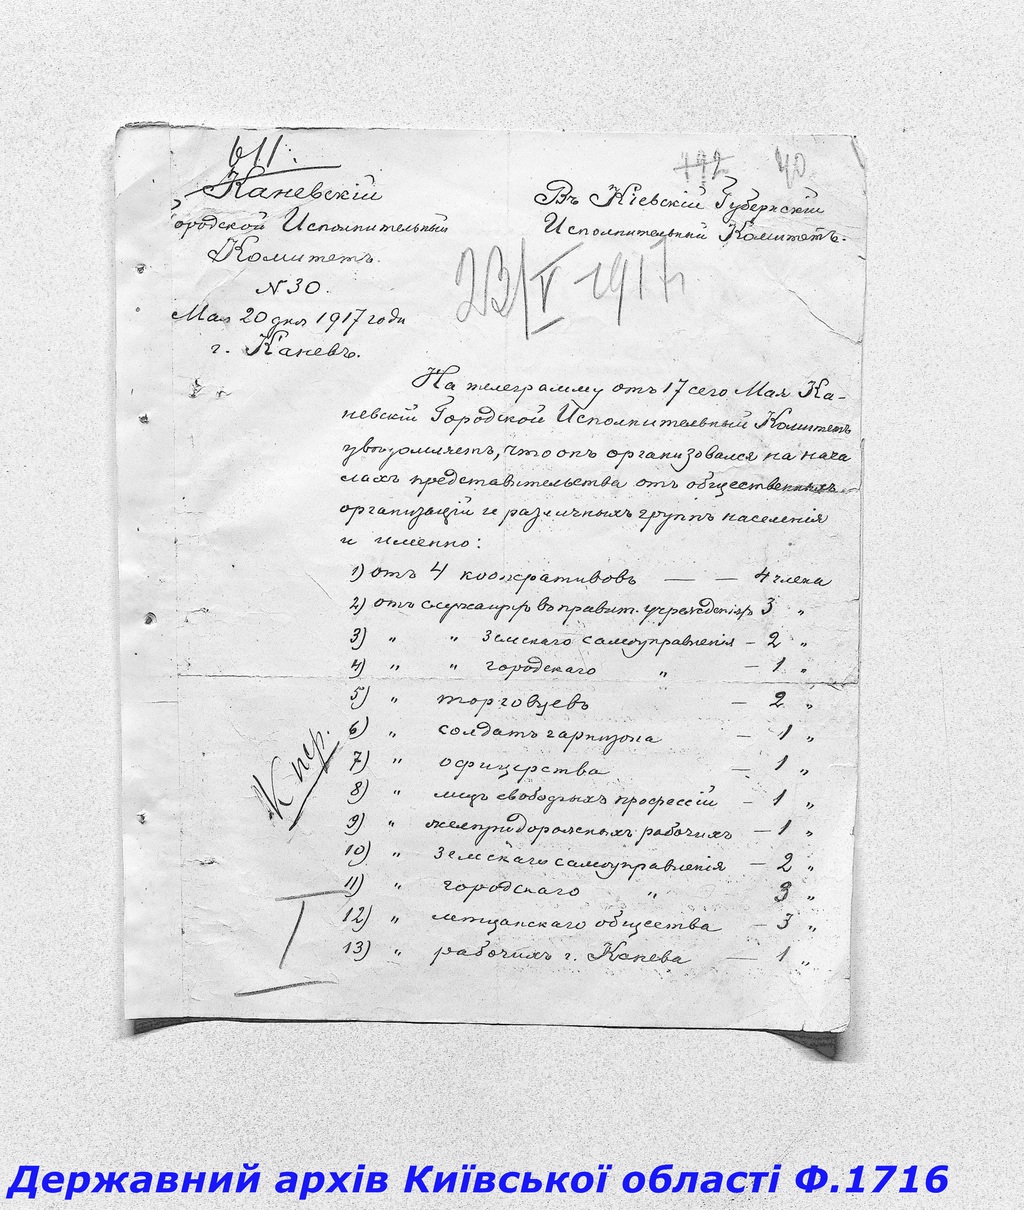 611.
Каневскій
Городской Исполнительный
Комитетъ.
N 30.
Мая 20 дня 1917 года
г. Каневъ.
192 40.
Въ Кіевскій Губернскій
Исполнительный Комитетъ.
23/V 1917 г.
На телеграмму отъ 17 сего Мая Ка-
невскій Городской Исполнительный Комитетъ
увѣдомляетъ, что онъ организовался на нача
лахъ представительства отъ общественныхъ
организацій и различныхъ группъ населенія
и именно:
1) отъ 4 кооперативовъ — — 4 члена
2) отъ служащихъ въ правит. учрежденіяхъ 3 „
3) „ „ Земскаго самоуправленія – 2 „
4) „ „ городскаго „ – 1 „
5) „ торговцевъ – 2 „
6) „ солдатъ гарнизона – 1 „
7) „ офицерства – 1 „
8) „ лицъ свободныхъ профессій – 1 „
9) „ желѣзнодорожныхъ рабочихъ – 1 „
10) „ Земскаго самоуправленія – 2 „
11) „ городскаго „ 3 „
12) „ мещанскаго общества – 3 „
13) „ рабочихъ г. Канева — 1 „
К пер.
Державний архів Київської області Ф.1716